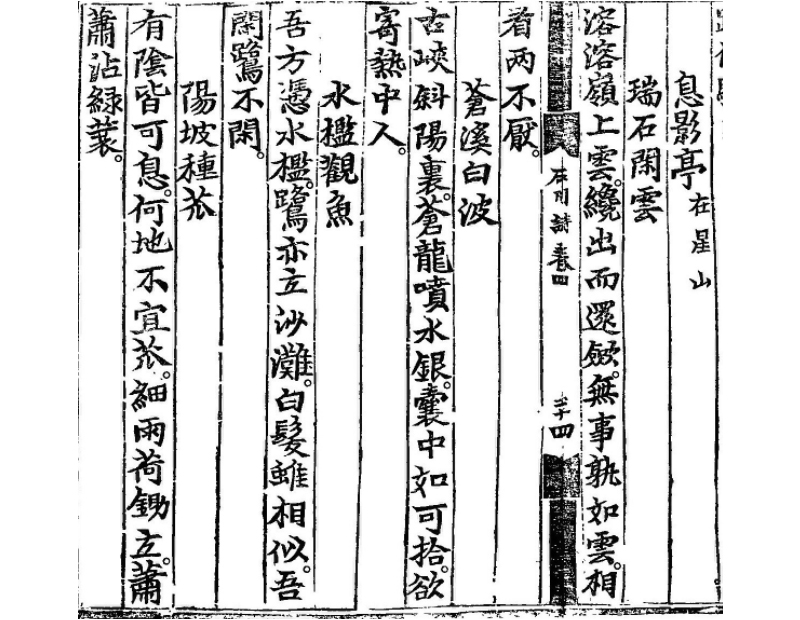 息影亭在星山
瑞石閑雲
溶溶嶺上雲。纔出而還斂。無事孰如雲。相
看兩不厭。
石川詩卷四
二十四
蒼溪白波
古峽斜陽裏。蒼龍噴水銀。囊中如可拾。欲
寄熱中人。
水檻觀魚
吾方憑水檻。鷺亦立沙灘。白髮雖相似。吾
閑鷺不閑。
陽坡種苽
有陰皆可息。何地不宜苽。細雨荷鋤立。蕭
蕭沾綠蓑。